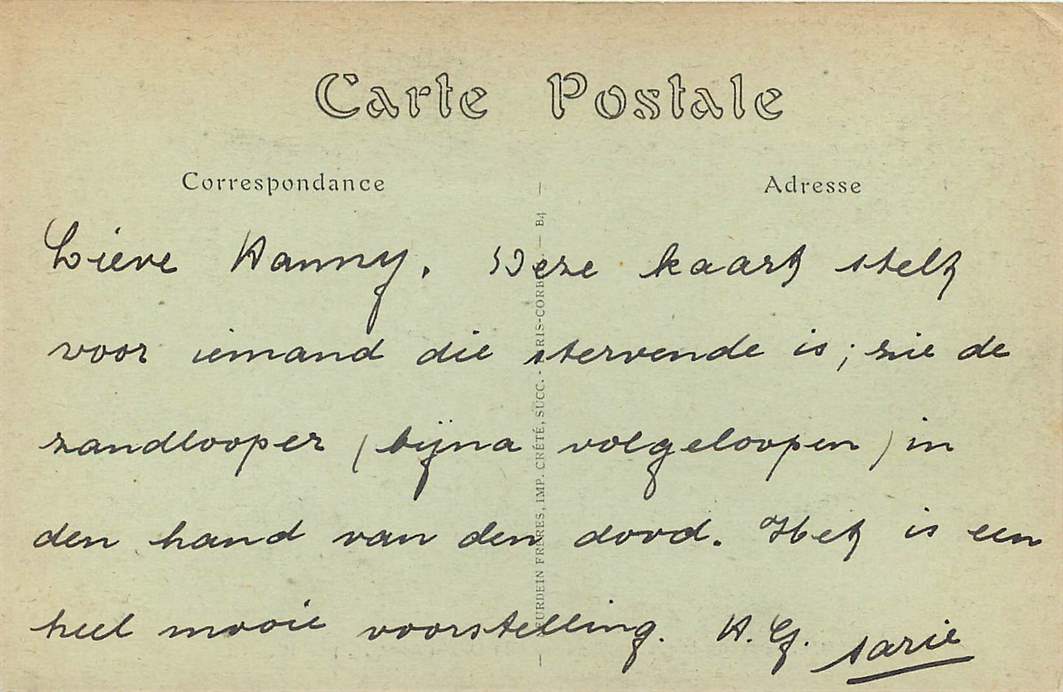 Carte Postale
Correspondance
Adresse
Lieve Hanny. Deze kaart stelt
voor iemand die stervende is; zie de
zandlooper (bijna volgeloopen) in
den hand van den dood. Het is een
heel mooie voorstelling. H. G. Sarie
EURDEIN FRÈRES, IMP. CRÉTÉ, SUCC. - PARIS-CORBE — B4 —